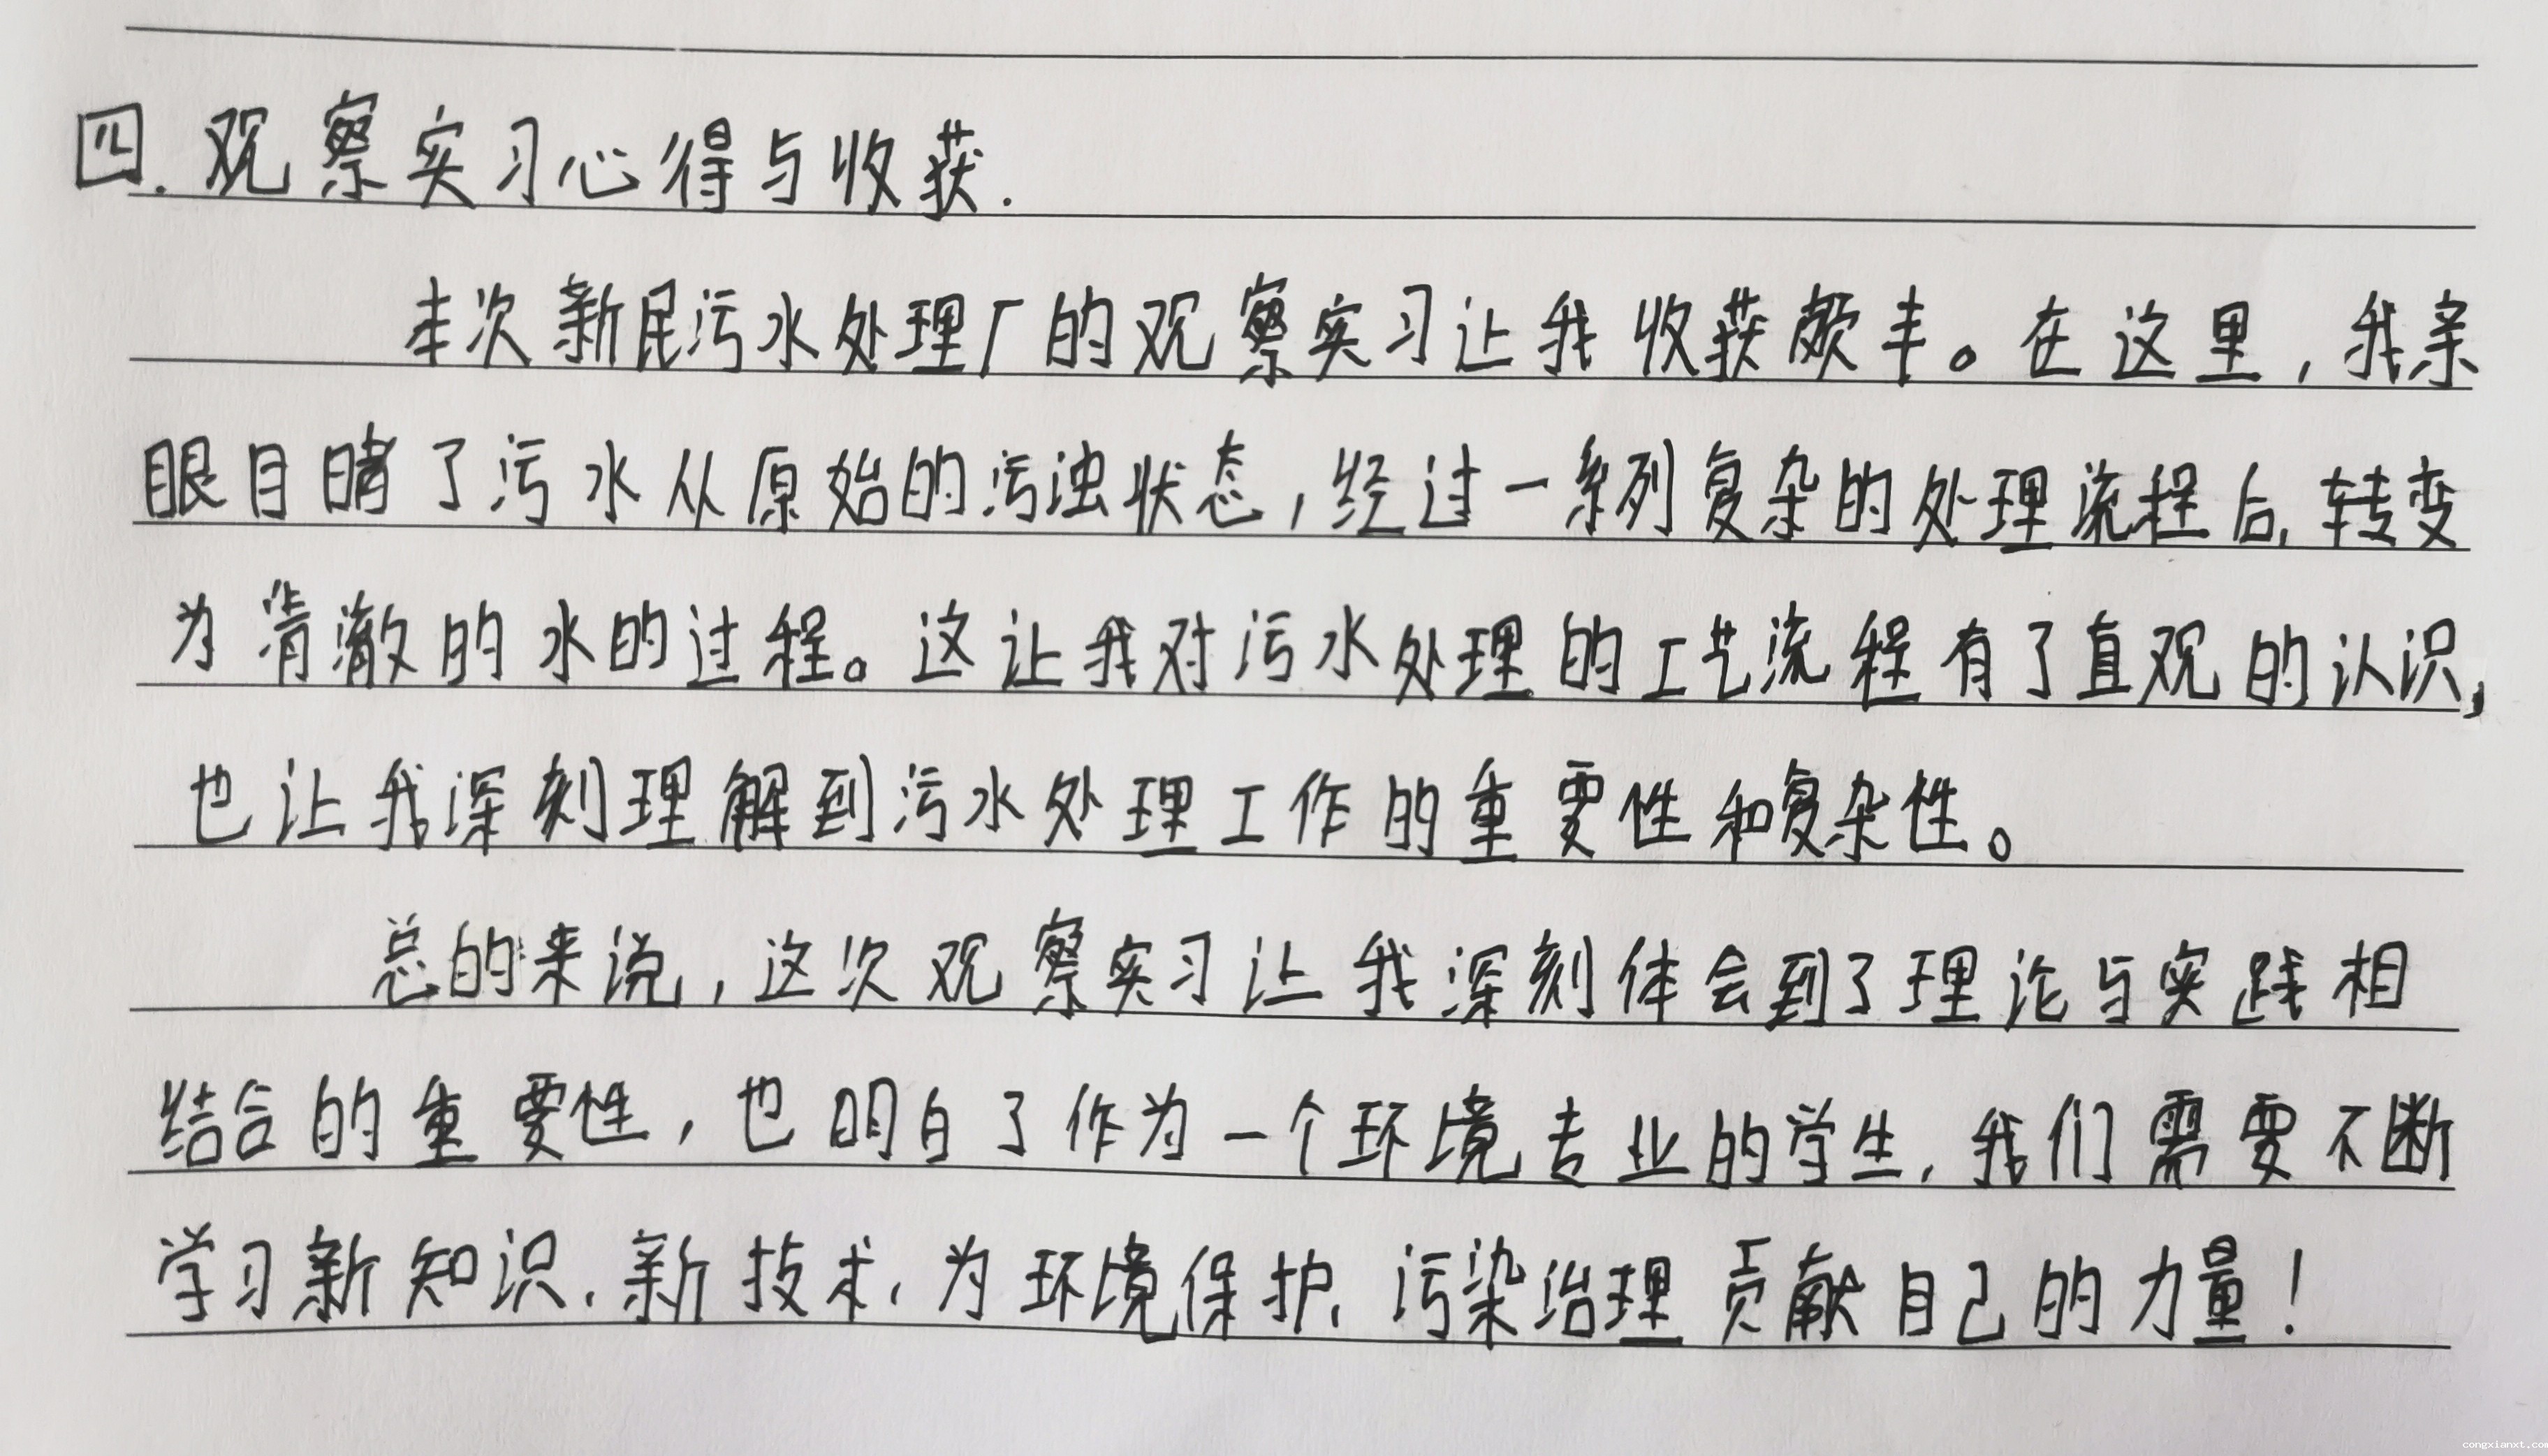 四.观察实习心得与收获.
本次新民污水处理厂的观察实习让我收获颇丰。在这里,我亲
眼目睹了污水从原始的污浊状态,经过一系列复杂的处理流程后,转变
为清澈的水的过程。这让我对污水处理的工艺流程有了直观的认识,
也让我深刻理解到污水处理工作的重要性和复杂性。
总的来说,这次观察实习让我深刻体会到了理论与实践相
结合的重要性,也明白了作为一个环境专业的学生,我们需要不断
学习新知识、新技术,为环境保护、污染治理贡献自己的力量!
congxianxt.com